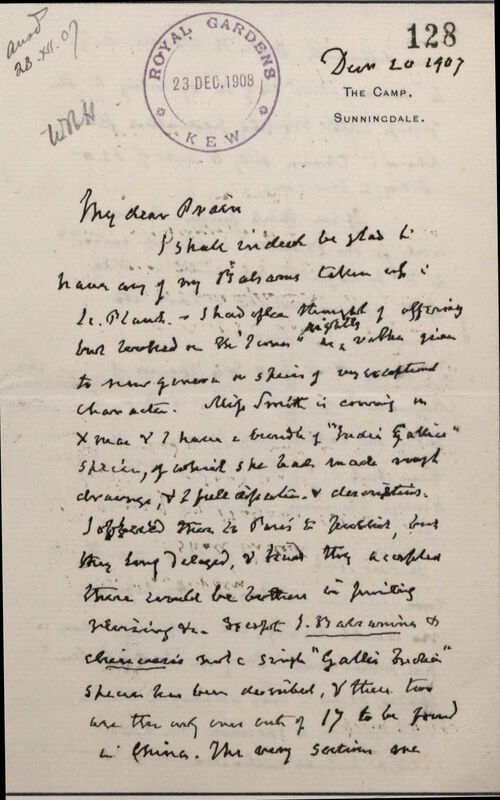 ansd
28.XII.07
WBH
ROYAL GARDENS
23 DEC. 1908
KEW
128
Decr 20 1907
THE CAMP,
SUNNINGDALE.
My dear Prain
I shall indeed be glad to
have any of my Balsams taken up in
Ic. Plant. - I had often thought of offering
but looked on the "Icones" as rightly rather given
to new genera or species of very exceptional
character. Miss Smith is coming on
Xmas & I have a bundle of "Indiae Gallica"
species, of which she has made rough
drawings, & I full dissection & descriptions.
I offered them to Paris to publish, but
they long delayed, & had they accepted
there would be bothers in printing
revising &c. Except I. Balsamina &
chinensis not a single "Gallic Indian"
species has been described, & these two
are the only ones out of 17 to be found
in China. The very sections are